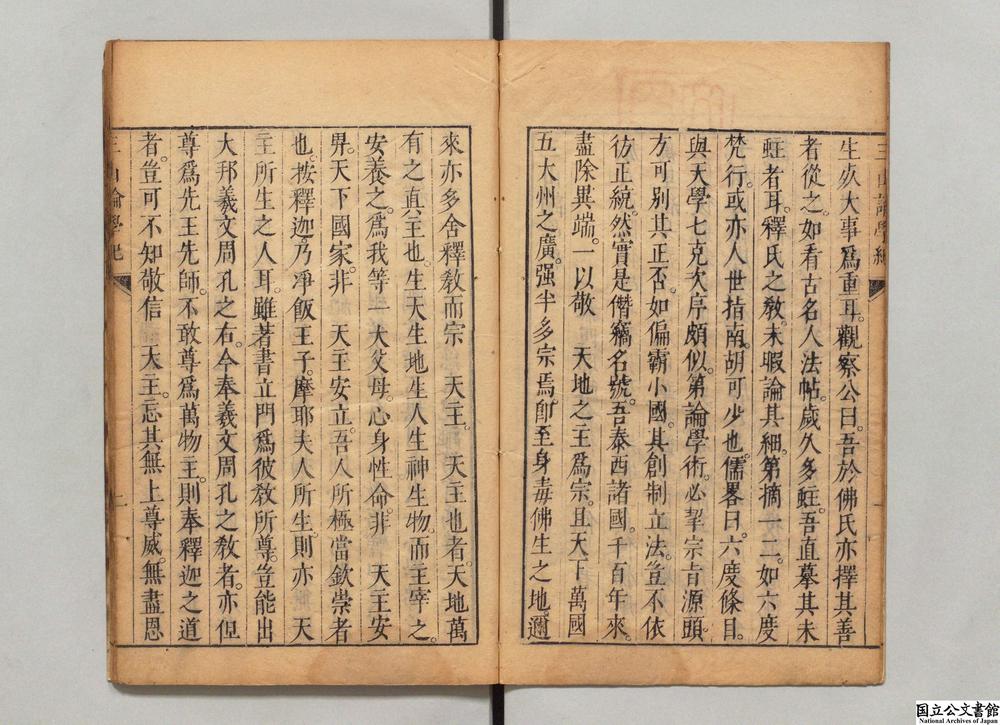 三山論學紀
生㱕大事爲重耳。觀察公曰。吾於佛氏亦擇其善
者從之。如看古名人法帖。歲久多蛀。吾直摹其未
蛀者耳。釋氏之敎。未暇論其細。第摘一二。如六度
梵行。或亦人世指南。胡可少也。儒畧曰。六度條目。
與天學七克次序頗似。第論學術。必挈宗㫖源頭。
方可別其正否。如偏霸小國。其創制立法。豈不依
彷正統。然實是僭竊名號。吾泰西諸國。千百年來。
盡除異端。一以敬　天地之主爲宗。且天下萬國
五大州之廣。强半多宗焉。卽至身毒佛生之地。邇
來亦多舍釋敎而宗　天主。　天主也者。天地萬
有之眞主也。生天生地生人生神生物。而主宰之。
安養之。爲我等一大父母。心身性命。非　天主安
畀。天下國家。非　天主安立。吾人所極當欽崇者
也。按釋迦。乃淨飯王子。摩耶夫人所生。則亦　天
主所生之人耳。雖著書立門爲彼敎所尊。豈能出
大邦羲文周孔之右。今奉羲文周孔之敎者。亦但
尊爲先王先師。不敢尊爲萬物主。則奉釋迦之道
者。豈可不知敬信　天主。忘其無上尊威。無盡恩
三山論學紀
二
国立公文書館
National Archives of Japan